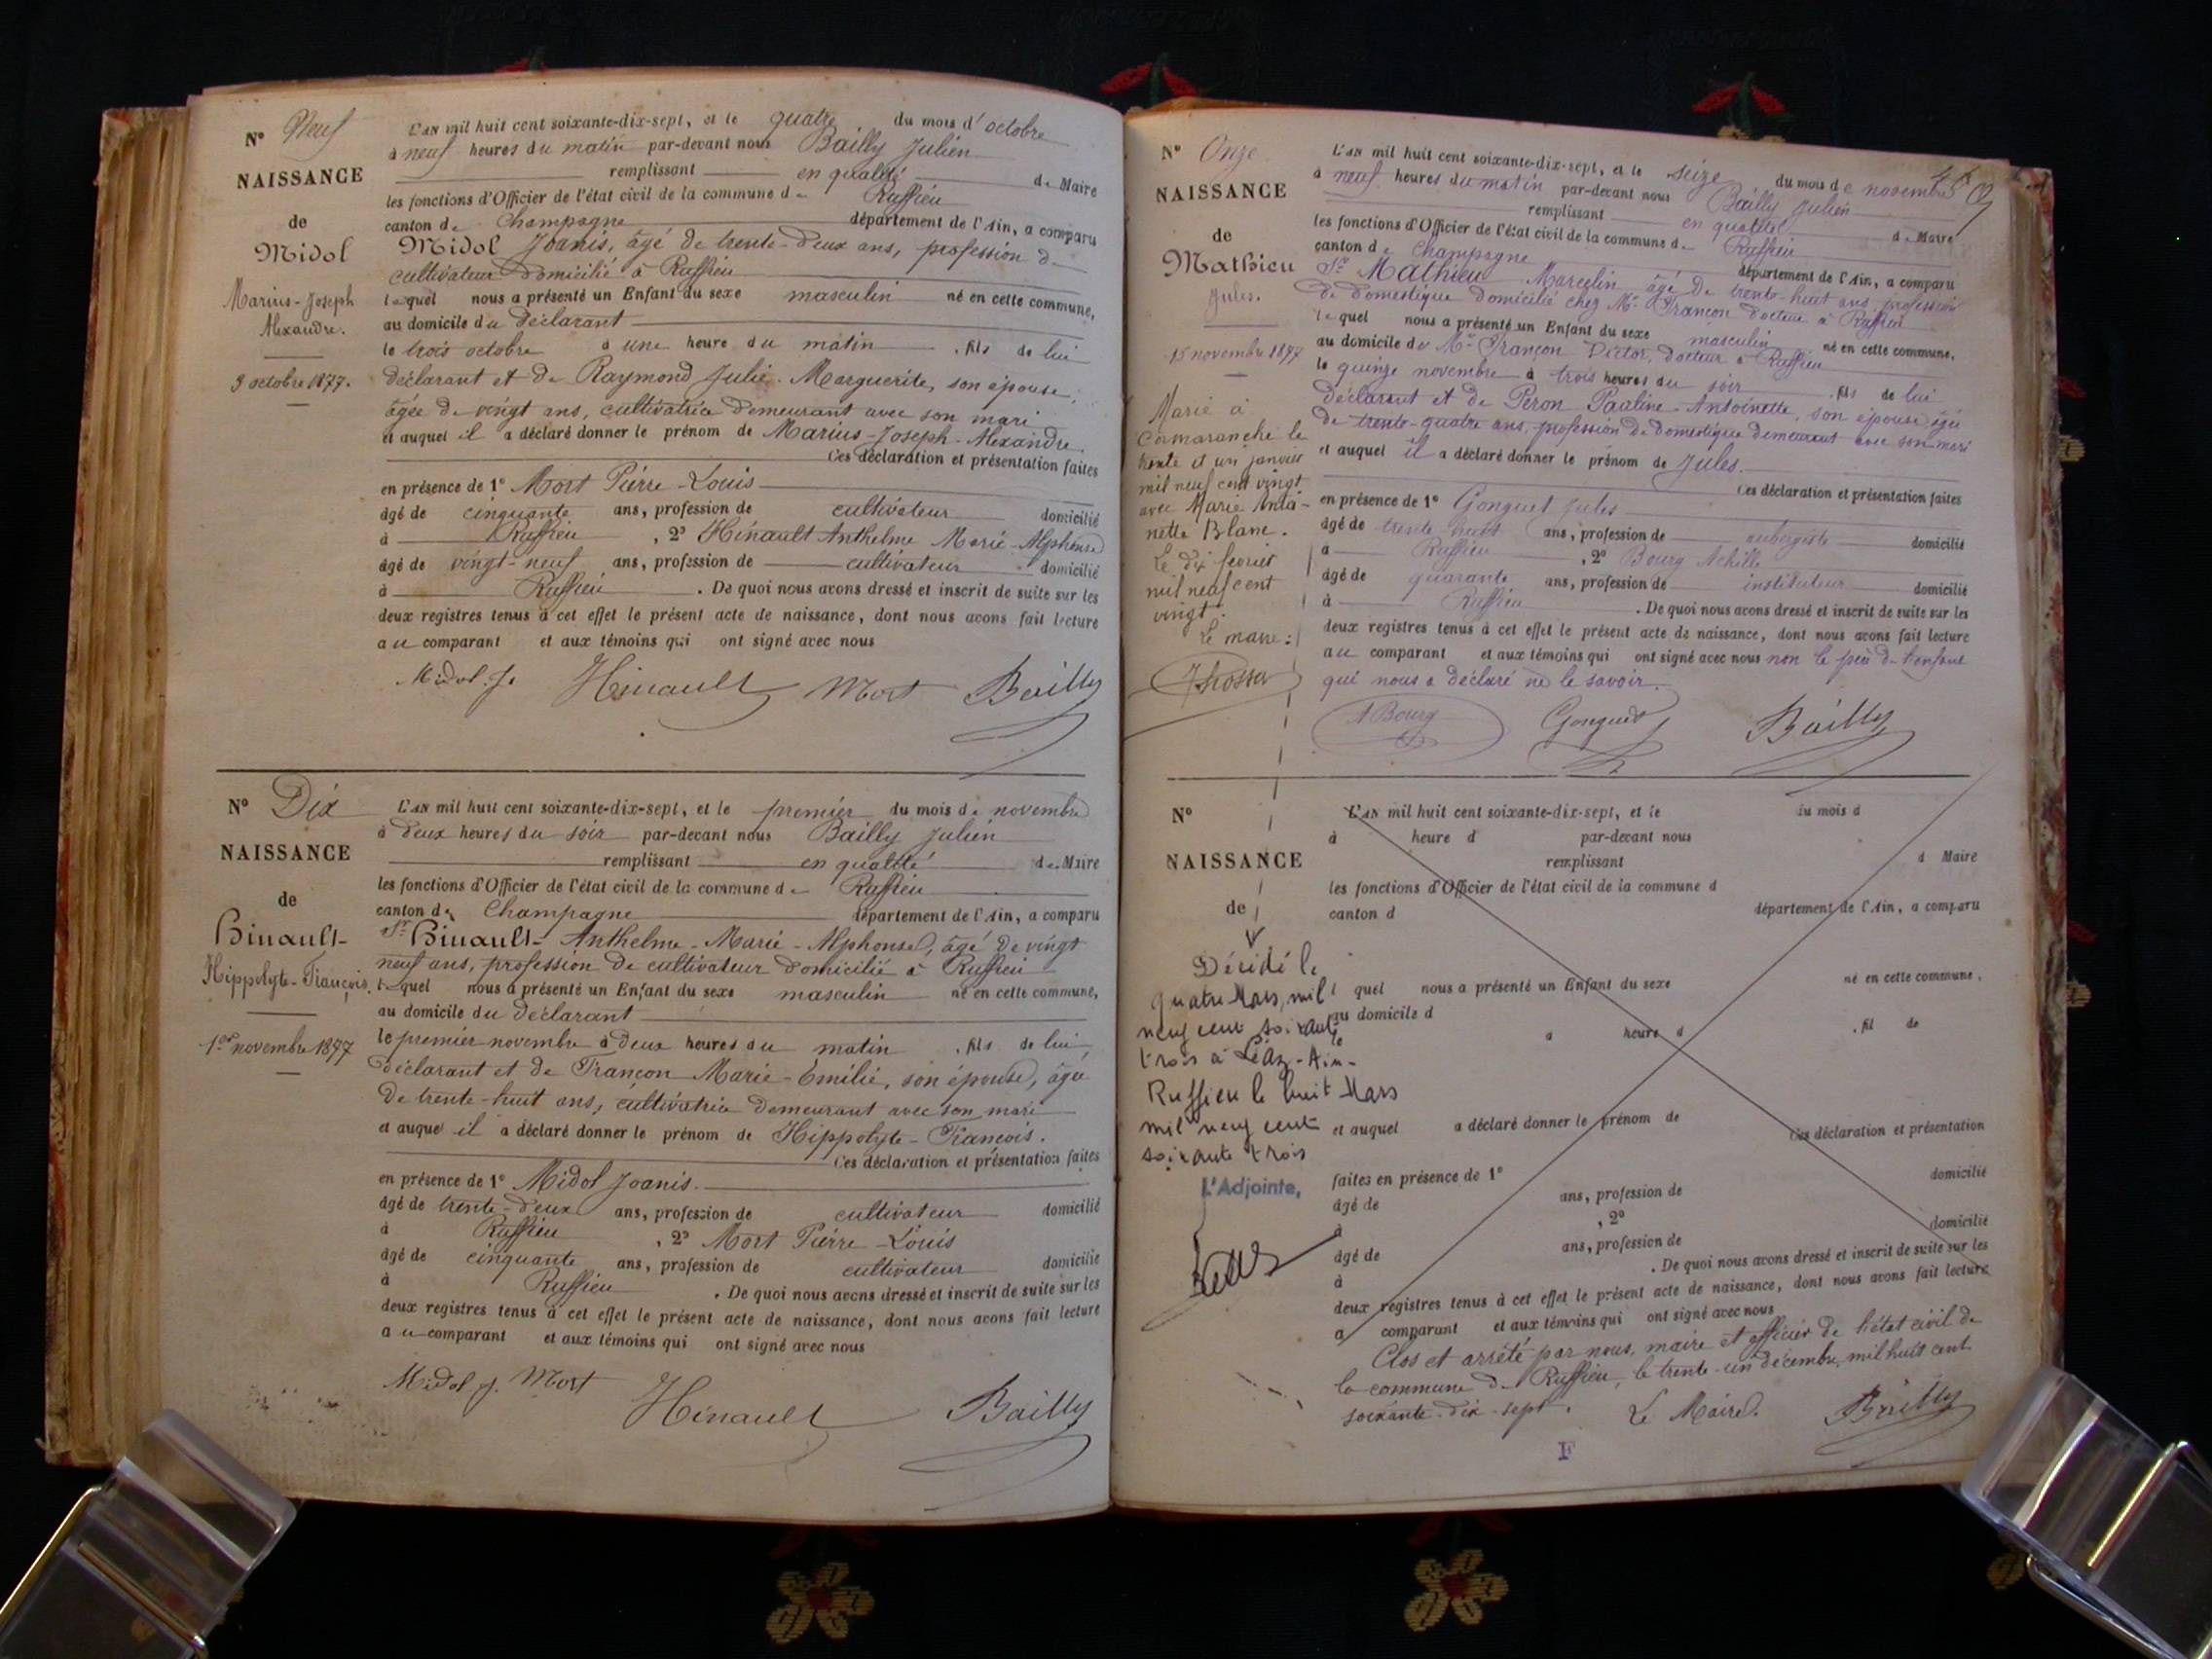 N° Neuf
NAISSANCE
de
Midol
Marius-Joseph
Alexandre.
3 octobre 1877.
L'AN mil huit cent soixante-dix-sept, et le quatre du mois d'octobre
à neuf heures du matin par-devant nous Bailly Julien
remplissant en qualité de Maire
les fonctions d'Officier de l'état civil de la commune de Ruffieu
canton de Champagne département de l'Ain, a comparu
Midol Joanis, âgé de trente-deux ans, profession de
cultivateur domicilié à Ruffieu
lequel nous a présenté un Enfant du sexe masculin né en cette commune,
au domicile du déclarant
le trois octobre à une heure du matin , fils de lui
déclarant et de Raymond Julie-Marguerite, son épouse,
âgée de vingt ans, cultivatrice demeurant avec son mari
et auquel il a déclaré donner le prénom de Marius-Joseph-Alexandre.
Ces déclaration et présentation faites
en présence de 1° Mort Pierre-Louis
âgé de cinquante ans, profession de cultivateur domicilié
à Ruffieu , 2° Hinault Anthelme Marie-Alphonse
âgé de vingt-neuf ans, profession de cultivateur domicilié
à Ruffieu . De quoi nous avons dressé et inscrit de suite sur les
deux registres tenus à cet effet le présent acte de naissance, dont nous avons fait lecture
au comparant et aux témoins qui ont signé avec nous
Midol J. Hinault Mort Bailly
N° Dix
NAISSANCE
de
Hinault
Hippolyte-François.
1er novembre 1877
L'AN mil huit cent soixante-dix-sept, et le premier du mois de novembre
à deux heures du soir par-devant nous Bailly Julien
remplissant en qualité de Maire
les fonctions d'Officier de l'état civil de la commune de Ruffieu
canton de Champagne département de l'Ain, a comparu
Sr Hinault Anthelme-Marie-Alphonse, âgé de vingt
neuf ans, profession de cultivateur domicilié à Ruffieu
lequel nous a présenté un Enfant du sexe masculin né en cette commune,
au domicile du déclarant
le premier novembre à deux heures du matin , fils de lui
déclarant et de Françon Marie-Emilie, son épouse, âgée
de trente-huit ans, cultivatrice demeurant avec son mari
et auquel il a déclaré donner le prénom de Hippolyte-François.
Ces déclaration et présentation faites
en présence de 1° Midol Joanis.
âgé de trente-deux ans, profession de cultivateur domicilié
à Ruffieu , 2° Mort Pierre-Louis
âgé de cinquante ans, profession de cultivateur domicilié
à Ruffieu . De quoi nous avons dressé et inscrit de suite sur les
deux registres tenus à cet effet le présent acte de naissance, dont nous avons fait lecture
au comparant et aux témoins qui ont signé avec nous
Midol J. Mort Hinault Bailly
N° Onze
NAISSANCE
de
Mathieu
Jules.
15 novembre 1877
Marié à
Cormaranche le
trente et un janvier
mil neuf cent vingt
avec Marie Antoi-
nette Blanc.
Le dix février
mil neuf cent
vingt.
Le maire:
L'AN mil huit cent soixante-dix-sept, et le seize du mois de novembre
à neuf heures du matin par-devant nous Bailly Julien
remplissant en qualité de Maire
les fonctions d'Officier de l'état civil de la commune de Ruffieu
canton de Champagne département de l'Ain, a comparu
Sr Mathieu Marcelin âgé de trente-huit ans, profession
de domestique domicilié chez Mr Françon docteur à Ruffieu
lequel nous a présenté un Enfant du sexe masculin né en cette commune,
au domicile de Mr Françon Victor, docteur à Ruffieu
le quinze novembre à trois heures du soir , fils de lui
déclarant et de Péron Pauline-Antoinette, son épouse, âgée
de trente-quatre ans, profession de domestique demeurant avec son mari
et auquel il a déclaré donner le prénom de Jules.
Ces déclaration et présentation faites
en présence de 1° Gonguet Jules
âgé de trente-huit ans, profession de aubergiste domicilié
à Ruffieu , 2° Bourg Achille
âgé de quarante ans, profession de instituteur domicilié
à Ruffieu . De quoi nous avons dressé et inscrit de suite sur les
deux registres tenus à cet effet le présent acte de naissance, dont nous avons fait lecture
au comparant et aux témoins qui ont signé avec nous non le père de l'enfant
qui nous a déclaré ne le savoir.
A Bourg Gonguet J Bailly
N°
NAISSANCE
de
Décidé le
quatre Mars, mil
neuf cent soixante
trois à Léaz-Ain-
Ruffieu le huit Mars
mil neuf cent
soixante trois
L'Adjointe,
L'AN mil huit cent soixante-dix-sept, et le du mois d
à heure d par-devant nous
remplissant d Maire
les fonctions d'Officier de l'état civil de la commune d
canton d département de l'Ain, a comparu
l quel nous a présenté un Enfant du sexe né en cette commune,
au domicile d
le a heure d , fil de
et auquel a déclaré donner le prénom de
Ces déclaration et présentation
faites en présence de 1°
âgé de ans, profession de domicilié
à , 2°
âgé de ans, profession de domicilié
à . De quoi nous avons dressé et inscrit de suite sur les
deux registres tenus à cet effet le présent acte de naissance, dont nous avons fait lecture
a comparant et aux témoins qui ont signé avec nous
Clos et arrêté par nous, maire et officier de l'état civil de
la commune de Ruffieu, le trente-un décembre, mil huit cent
soixante-dix-sept. Le Maire. Bailly
F